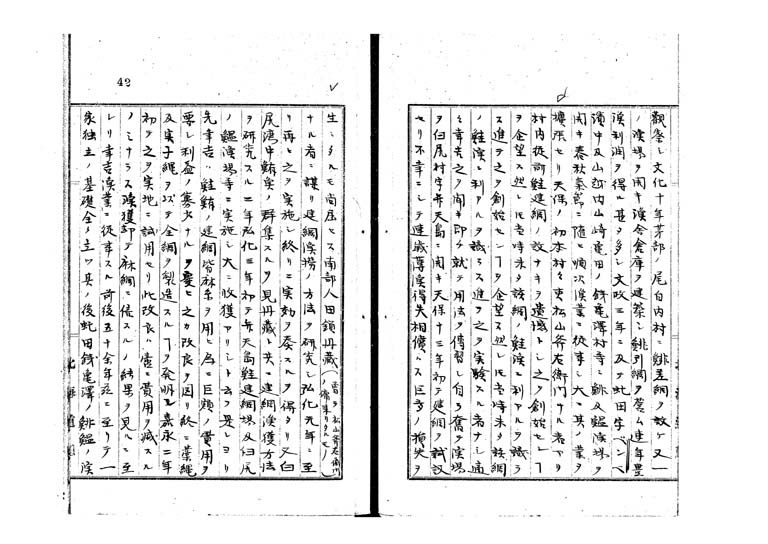 観察シ文化十年茅部ノ尾白内村ニ鯡差網ヲ放テ又一
ノ漁場ヲ開キ漁舎倉庫ヲ建築シ鯡刺網ヲ営ム連年豊
漁利潤ヲ得ル甚タ多シ文政三年ニ及テ虻田字ベンベ
濱中及山越内山崎亀田ノ銭亀澤村等ニ鯡及鰮漁場ヲ
開キ春秋季節ニ随ヒ順次漁業ニ従事シ大ニ其ノ業ヲ
擴張セリ天保ノ初本村ノ吏松山斧右衛門ナル者アリ
村内従前鮭建網ノ放ナキヲ遺憾トシ之ヲ創始セン丁
ヲ企望ス然レ圧當時未タ該網ノ鮭漁ニ利アルヲ識ラ
ス進テ之ヲ創始セン丁ヲ企望ス然レ圧當時未タ該網
ノ鮭漁ニ利アルヲ識ラス進テ之ヲ実験スル者ナシ適
幸吉之ヲ聞キ即チ就テ用法ヲ傳習シ自ラ奮テ漁場
ヲ臼尻村字弁天島ニ開キ天保十三年初テ建網ヲ試設
セリ不幸ニシテ連歳薄漁得失相償ハス巨多ノ損失ヲ
42
生シタルモ尚屈セス南部人田鎖丹蔵(曽テ松山斧右衛門ノ傭
ナル者ニ謀リ建網漁撈ノ方法ヲ研究シ弘化元年ニ至
リ再ヒ之ヲ実施シ終リニ実効ヲ奏スルヲ得タリ又臼
尻湾中鮪魚ノ群集スルヲ見丹蔵ト共ニ建網漁獲方法
ヲ研究スル二年弘化三年初テ弁天島鮭建網場及臼尻
ノ鰮漁場等ニ実施シ大ニ収獲アリシト云フ是レヨリ
先幸吉ハ鮭鮪ノ建網皆麻糸ヲ用ヒ為ニ巨額ノ費用ヲ
要シ利益ノ寡少ナルヲ憂ヒ之カ改良ヲ図リ終ニ藁縄
及実子縄ヲ以テ全網ヲ製造スル丁ヲ発明シ嘉永二年
初テ之ヲ実地ニ試用セリ此改良ハ啻ニ費用ヲ減スル
ノミナラス漁獲却テ麻網ニ倍スルノ結果ヲ見ルニ至
レリ幸吉漁業ニ従事スル前後五十余年茲ニ至リテ一
家独立ノ基礎全ク立ツ其ノ後虻田銭亀澤ノ鯡鰮ノ漁